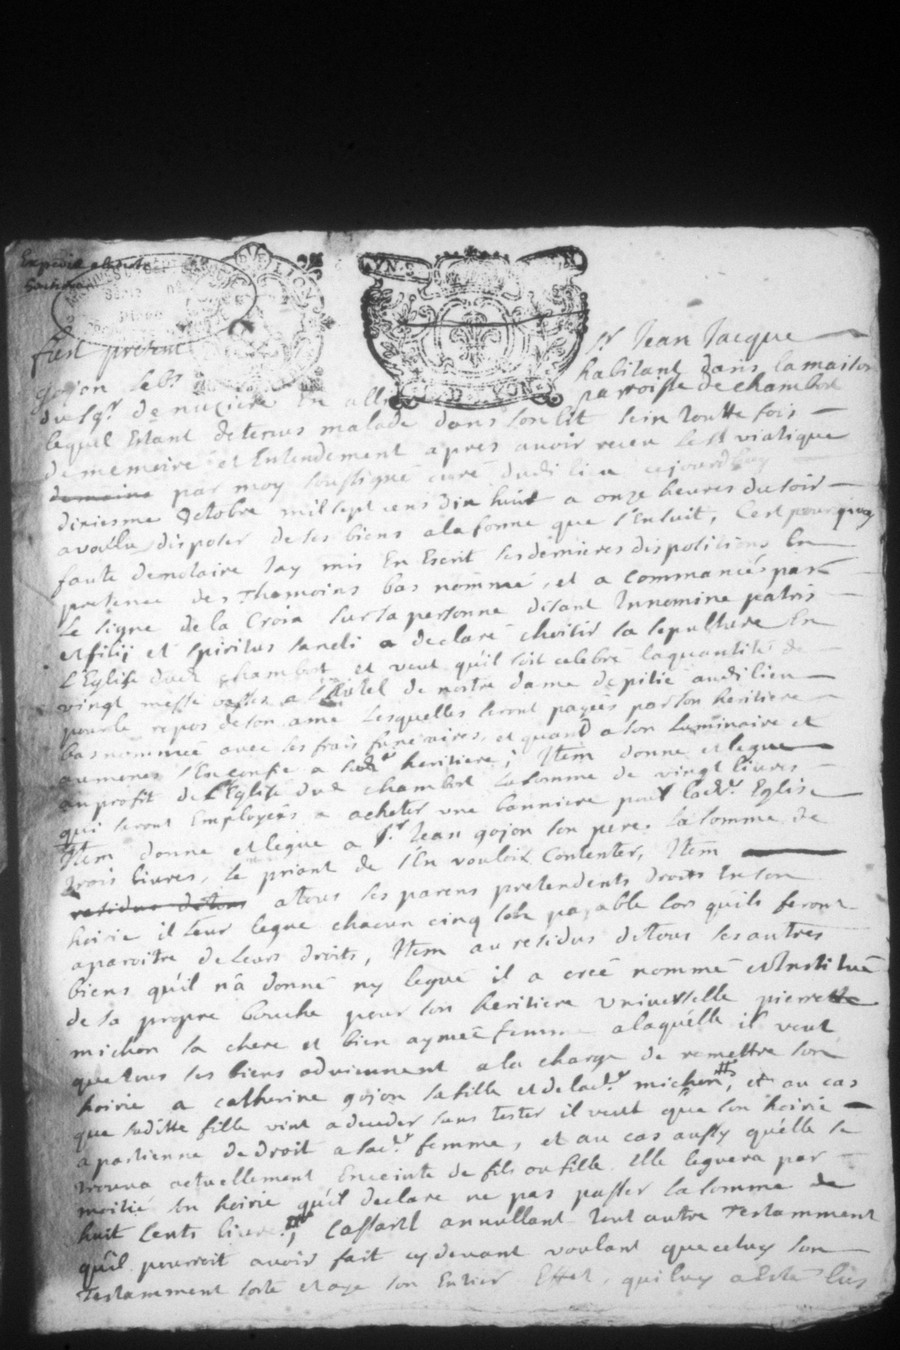 Expedié
fust present Sr Jean Jacque
gojon habitant dans la maison
du Sgr de nuziere parroisse de chambost
lequel Estant detenus malade dans son lit sein toutte fois
de memoire et Entendement apres avoir receu le St viatique
par moy soussigné curé dudi lieu cejourdhuy
dixiesme Octobre mil sept cens dix huit a onze heures du soir
a voullu disposer de ses biens a la forme que s'Ensuit, C'est pourquoy
faute de notaire Jay mis En Escrit ses dernieres dispositions En
presence des Thémoins bas nommé, et a commancés par
Le signe de la Croix sur sa personne disant Innomine patris
et filij et spiritus sancti a declaré choisir sa sepulture En
L'Eglise dud chambost et veut qu'il soit celebré la quantité de
vingt messe a L'Autel de nostre dame de pitié audi lieu
pour le repos de son ame Lesquelles seront payées par son heritiere
bas nommée avec ses frais funeraires, et quand a son Luminaire et
aumones s'En confie a sadr heritiere; Item donne et legue
au profit de L'Eglise dud chambost La somme de vingt livres
qui seront Employées a acheter une banniere pour ladr Eglise
Item donne et legue a Sr Jean gojon son pere La somme de
trois livres, Le priant de s'En vouloir Contenter, Item
residus de tous a tous ses parens pretendents droits En son
hoirie il leur legue chacun cinq sols payable lors quils feront
aparoitre de Leurs droits, Item au residus de tous ses autres
biens qu'il n'a donné ny legué il a creé nommé et Institué
de sa propre bouche pour son heritiere universelle pierrette
michon sa chere et bien aymeé femme a laquélle il veut
que tous ses biens adviennent a la charge de remettre son
hoirie a catherine gojon sa fille et de ladr michon, et au cas
que saditte fille vint a deceder sans tester il veut que son hoirie
apartienne de droit a sadr femme, et au cas aussy qu'elle se
trouva actuellement Enceinte de fils ou fille Elle leguera par
moitié En hoirie qu'il declare ne pas passer La somme de
huit cents livres, Cassant annullant tout autre Testamment
qu'il pourroit avoir fait cy devant voulant que celuy son
Testamment sorte et aye son Entier Effet, qui luy a Esté lus